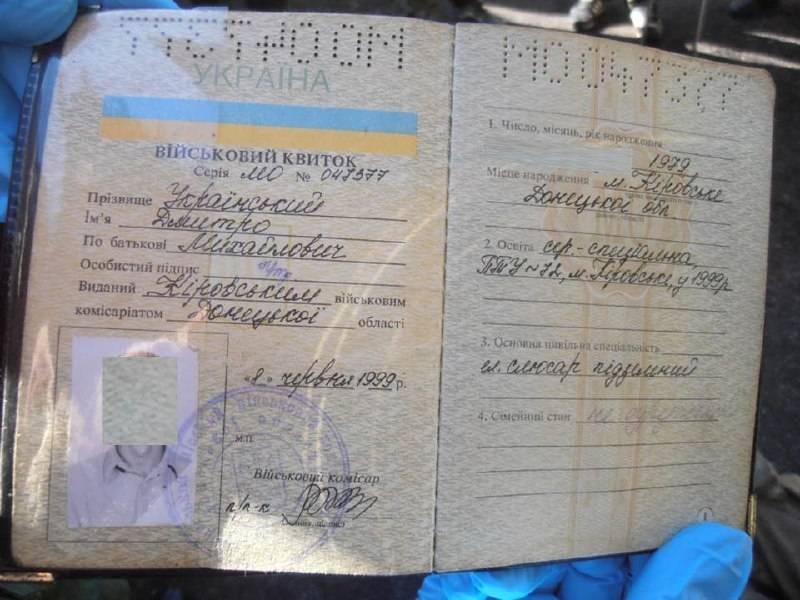 УКРАЇНА
ВІЙСЬКОВИЙ КВИТОК
Серія МО № 047377
Прізвище Український
Ім'я Дмитро
По батькові Михайлович
Особистий підпис
Виданий Кіровським військовим
комісаріатом Донецької області
«8» червня 1999 р.
М.П.
Військовий комісар
п/п-к
МО 047377
1. Число, місяць, рік народження
1979
Місце народження м. Кіровське
Донецької обл.
2. Освіта сер.-спеціальна,
ПТУ №72, м. Кіровське, у 1999р
3. Основна цивільна спеціальність
ел. слюсар підземний
4. Сімейний стан
1